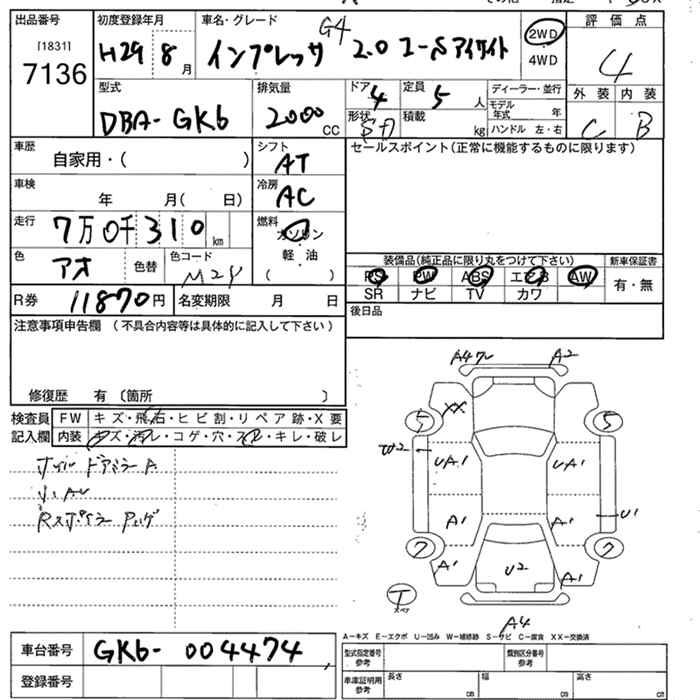 出品番号 初度登録年月 車名・グレード 評価点
[1831]
7136
H29 8月
インプレッサ G4 2.0 アイサイト
2WD
4WD
4
外装 内装
C B
型式 排気量 ドア 定員 ディーラー・並行
DBA-GK6 2000CC 4 5人
モデル年式 年
形状 積載 kg ハンドル 左・右
車歴 シフト セールスポイント(正常に機能するものに限ります)
自家用・( ) AT
車検 冷房
年 月( 日) AC
走行 燃料
7万0千310km ガソリン
軽油
( )
色 色替 色コード
アオ
装備品(純正品に限り丸をつけて下さい) 新車保証書
PS PW ABS エアB AW 有・無
SR ナビ TV カワ
R券 11870円 名変期限 月 日
後日品
注意事項申告欄 (不具合内容等は具体的に記入して下さい)
修復歴 有 〔箇所 〕
検査員記入欄 FW キズ・飛石・ヒビ割・リペア跡・X要
内装 キズ・汚レ・コゲ・穴・スレ・キレ・破レ
ドアミラー A
A2
XX
5 5
W2
UA1 UA1
U1
A1 A1
7 7
A1 U2 A1
T
A4
A-キズ E-エクボ U-凹み W-補修跡 S-サビ C-腐食 XX-交換済
車台番号 GK6-004474
登録番号
型式指定番号 参考 類別区分番号 参考
車庫証明用 参考 長さ cm 幅 cm 高さ cm